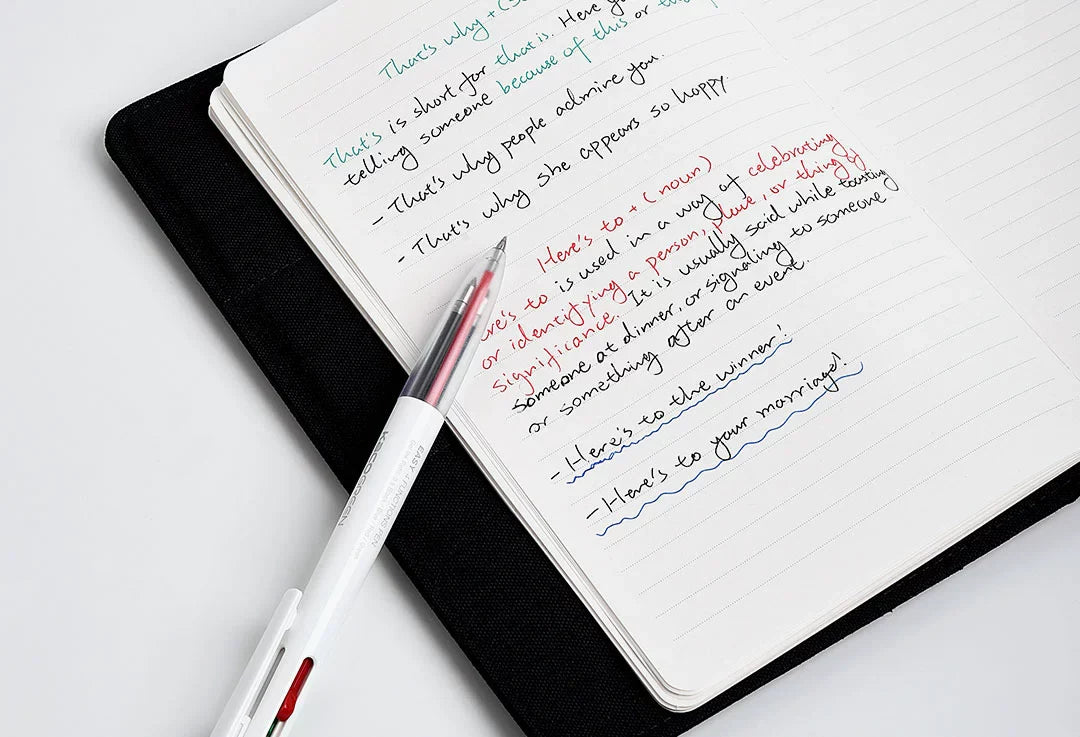 That's why + (S
That's is short for that is. Here yo
telling someone because of this or
- That's why people admire you.
- That's why she appears so happy.
Here's to + (noun)
ere's to is used in a way of celebrating
or identifying a person, place, or thing of
significance. It is usually said while toasting
someone at dinner, or signaling to someone
or something after an event.
- Here's to the winner!
- Here's to your marriage!
KACOGREEN
EASY 4 FUNCTIONS PEN